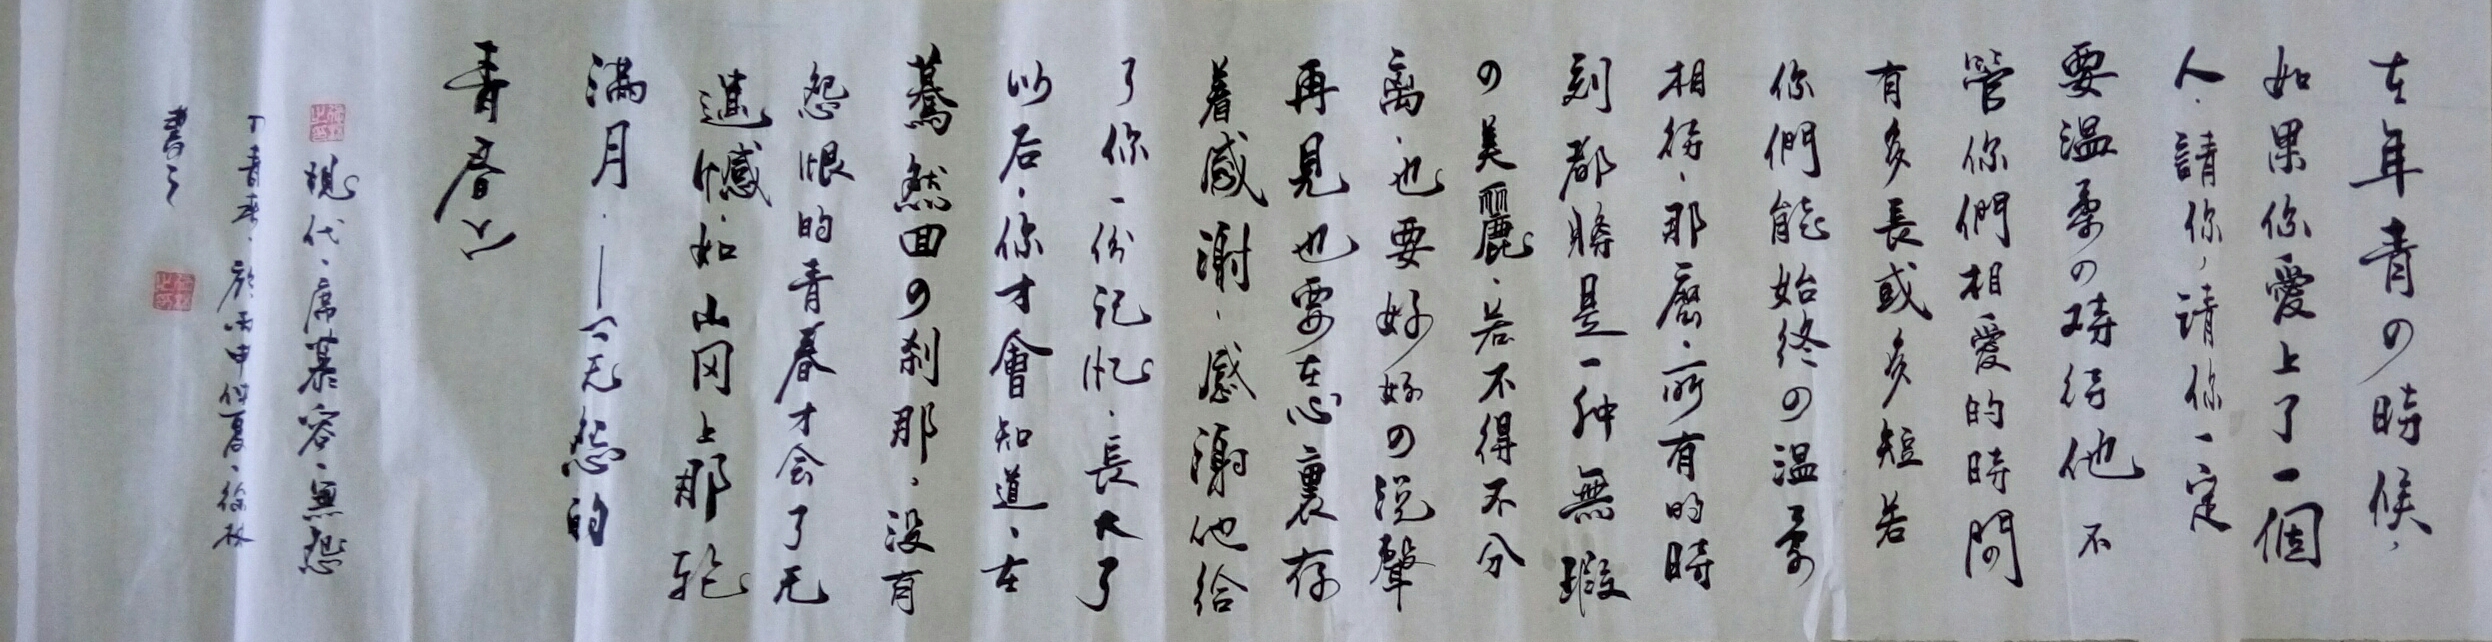 在年青の時候，
如果你愛上了一個
人、請你，請你一定
要温柔の時待他 不
管你們相愛的時間
有多長或多短 若
你們能始终の温柔
相待、那麽、所有的時
刻都將是一种無瑕
の美麗、若不得不分
离、也要好好の说聲
再見也要在心裏存
着感謝、感謝他给
了你一份记忆、長大了
以后、你才會知道、在
蓦然回の刹那，没有
怨恨的青春才会了无
遗憾、如山冈上那轮
满月、——《无怨的
青春》
現代、席慕容、無怨
丁青春、於丙申仲夏、徐林
書之